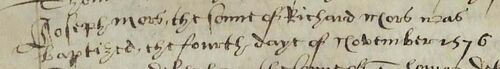 Joseph Mors, the sonne of Richard Mors was
baptized, the fourth daye of November 1576